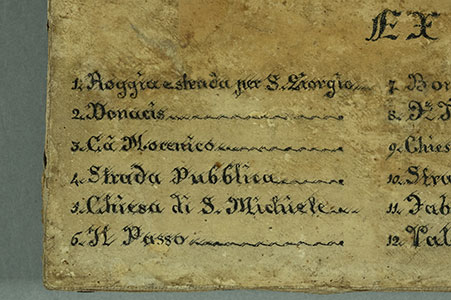 EX
1. Roggia e strada per S. Giorgio
2. Donacis
3. Cà Mocenico
4. Strada Pubblica
5. Chiesa di S. Michiele
6. Il Passo
7. Bon
8.
9. Chies
10. Stra
11. Fab
12.